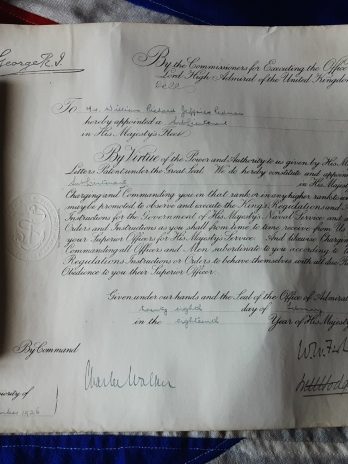 George R.I.
By the Commissioners for Executing the Office
Lord High Admiral of the United Kingdom
To Mr. William Richard Jeffries
hereby appointed a Sub Lieutenant
in His Majesty's Fleet
By Virtue of the Power and Authority to us given by His M
Letters Patent under the Great Seal. We do hereby constitute and appoin
Sub Lieutenant in His Majesty
Charging and Commanding you in that rank or in any higher rank to w
may be promoted to observe and execute the King's Regulations and
Instructions for the Government of His Majesty's Naval Service and a
Orders and Instructions as you shall from time to time receive from Us
your Superior Officers for His Majesty's Service. And likewise Charg
Commanding all Officers and Men subordinate to you according to
Regulations Instructions or Orders to behave themselves with all due R
Obedience to you their Superior Officer.
Given under our hands and the Seal of the Office of Admira
twenty eighth day of
in the eighteenth Year of His Majesty
By Command
Charles Walker
ority of
1926